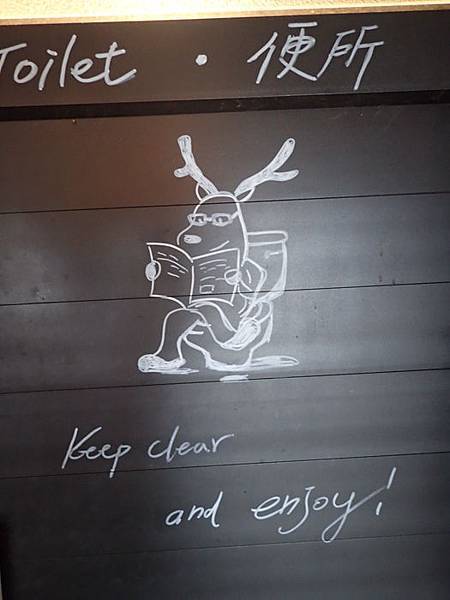 Toilet · 便所
Keep clear
and enjoy!